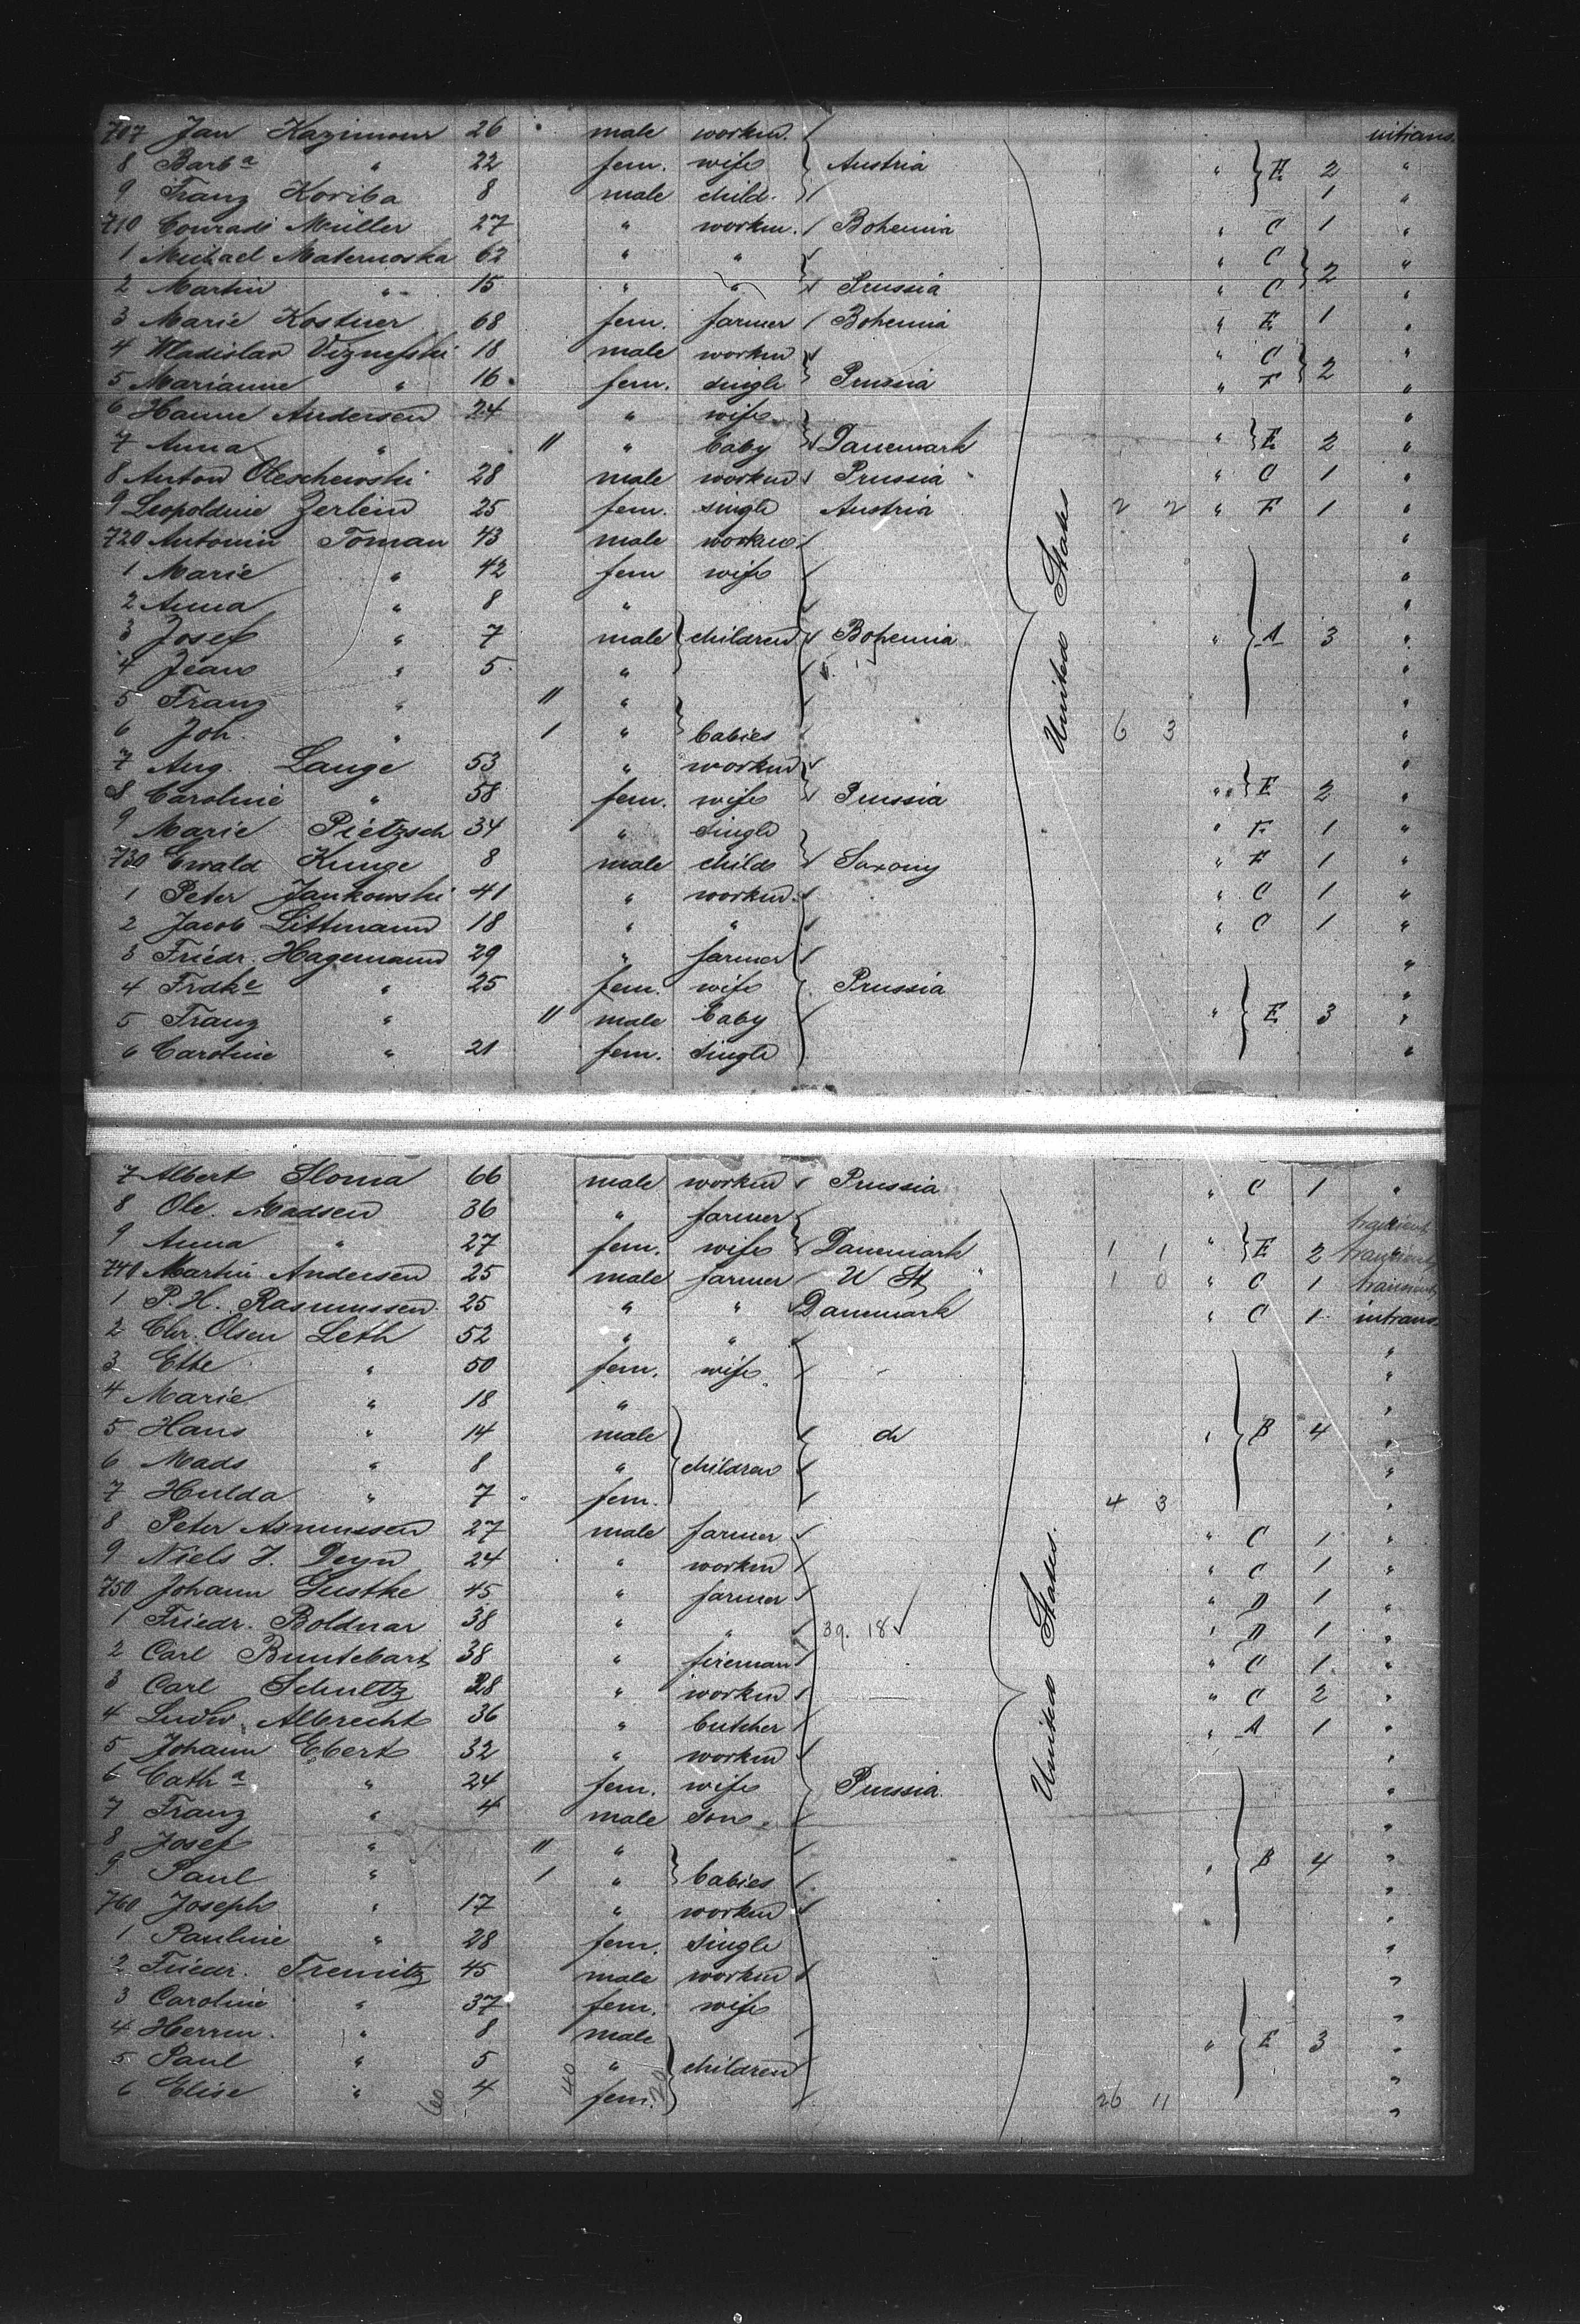 707 Jan Kazimour 26 male workm. intrans.
8 Barbª " 22 fem. wife Austria " E 2 "
9 Franz Koriba 8 male child. 1 "
710 Conrad Müller 27 " workm. Bohemia " C 1 "
1 Michael Maternoska 62 " " " C "
2 Martin " 15 " " Prussia " C 2 "
3 Marie Kostner 68 fem. farmer Bohemia " E 1 "
4 Wladislav 18 male workm " C "
5 Marianne " 16 fem. single Prussia " F 2 "
6 Hanne Andersen 24 " wife "
7 Anna " 11 " baby Danemark " E 2 "
8 Anton Oleschewski 28 male workm Prussia " C 1 "
9 Leopoldine Zerlein 25 fem. single Austria 2 2 " F 1 "
720 Antonin Toman 43 male workm "
1 Marie " 42 fem wife "
2 Anna " 8 " "
3 Josef " 7 male children Bohemia " A 3 "
4 Jean " 5 " "
5 Franz " 11 " "
6 Joh. " 1 " babies 6 3 "
7 Aug. Lange 53 " workm "
8 Caroline " 58 fem. wife Prussia " E 2 "
9 Marie Pietzsch 34 " single " F 1 "
730 Ewald Kunge 8 male child Saxony " F 1 "
1 Peter Jankowski 41 " workm. " C 1 "
2 Jacob Littmann 18 " " " C 1 "
3 Friedr. Hagemann 29 " farmer "
4 Frdke " 25 fem. wife Prussia "
5 Franz " 11 male baby " E 3 "
6 Caroline " 21 fem. single "
United States
7 Albert Sloma 66 male workm Prussia " C 1 "
8 Ole Madsen 36 " farmer transient
9 Anna " 27 fem. wife Danemark 1 1 " E 2 transient
740 Martin Andersen 25 male farmer U St 1 0 " C 1 transient
1 P. H. Rasmussen 25 " " Danemark " C 1 intrans.
2 Chr. Olsen Leth 52 " " "
3 Ette " 50 fem. wife "
4 Marie " 18 " "
5 Hans " 14 male do " B 4 "
6 Mads " 8 " children "
7 Hulda " 7 fem. 4 3 "
8 Peter Asmussen 27 male farmer " C 1 "
9 Niels J. Deyn 24 " workm " C 1 "
750 Johann Gustke 45 " farmer " D 1 "
1 Friedr. Boldnar 38 " " 39. 18 " D 1 "
2 Carl Buntebart 38 " fireman " C 1 "
3 Carl Schultz 28 " workm " C 2 "
4 Ludw. Albrecht 36 " butcher " A 1 "
5 Johann Ebert 32 " workm "
6 Cathª " 24 fem. wife Prussia "
7 Franz " 4 male son "
8 Josef " 11 " "
9 Paul " 1 " babies " B 4 "
760 Joseph " 17 " workm "
1 Pauline " 28 fem. single "
2 Friedr. Tremitz 45 male workm "
3 Caroline " 37 fem. wife "
4 Herrm. " 8 male "
5 Paul " 5 " children " E 3 "
6 Elise " 4 fem. 26 11 "
United States.
60 40 20